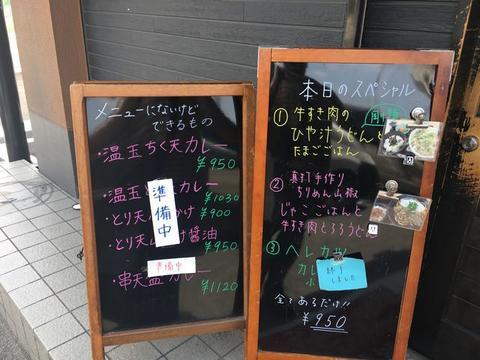 メニューにないけど
できるもの
・温玉ちく天カレー
¥950
・温玉 天カレー
¥1030
・とり天 かけ ¥900
・とり天 け醤油
¥950
準備中
準備中
・串天 カレー
¥1120
本日のスペシャル
① 牛すき肉の
ひや汁うどんと
たまごごはん
② 真打手作り
ちりめん山椒
じゃこごはんと
牛すき肉とろろうどん
③ ヘレカツ
カレ
終了
しました
全てあるだけ!!
¥950